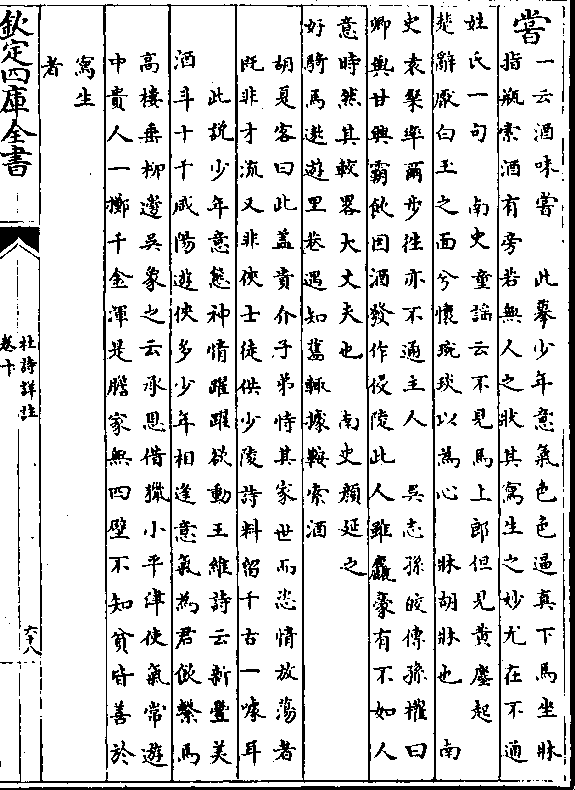 嘗一云酒味嘗　此摹少年意氣色色逼真下馬坐牀
指瓶索酒有旁若無人之狀其寫生之妙尤在不通
姓氏一句　南史童謠云不見馬上郎但見黃塵起
楚辭厭白玉之面兮懷琬琰以為心　牀胡牀也　南
史袁粲率爾步往亦不通主人　吳志孫皎傳孫權曰
卿與甘興霸飲因酒發作侵陵此人雖麤豪有不如人
意時然其較畧大丈夫也　南史顏延之
好騎馬遨遊里巷遇知舊輒據鞍索酒
胡夏客曰此蓋貴介子弟恃其家世而恣情放蕩者
既非才流又非俠士徒供少陵詩料留千古一噱耳
此說少年意態神情躍躍欲動王維詩云新豐美
酒斗十千咸陽遊俠多少年相逢意氣為君飲繫馬
高樓垂柳邊吳象之云承恩借獵小平津使氣常遊
中貴人一擲千金渾是膽家無四壁不知貧皆善於
寫生
者
欽定四庫全書
杜詩詳註
卷十
六十八